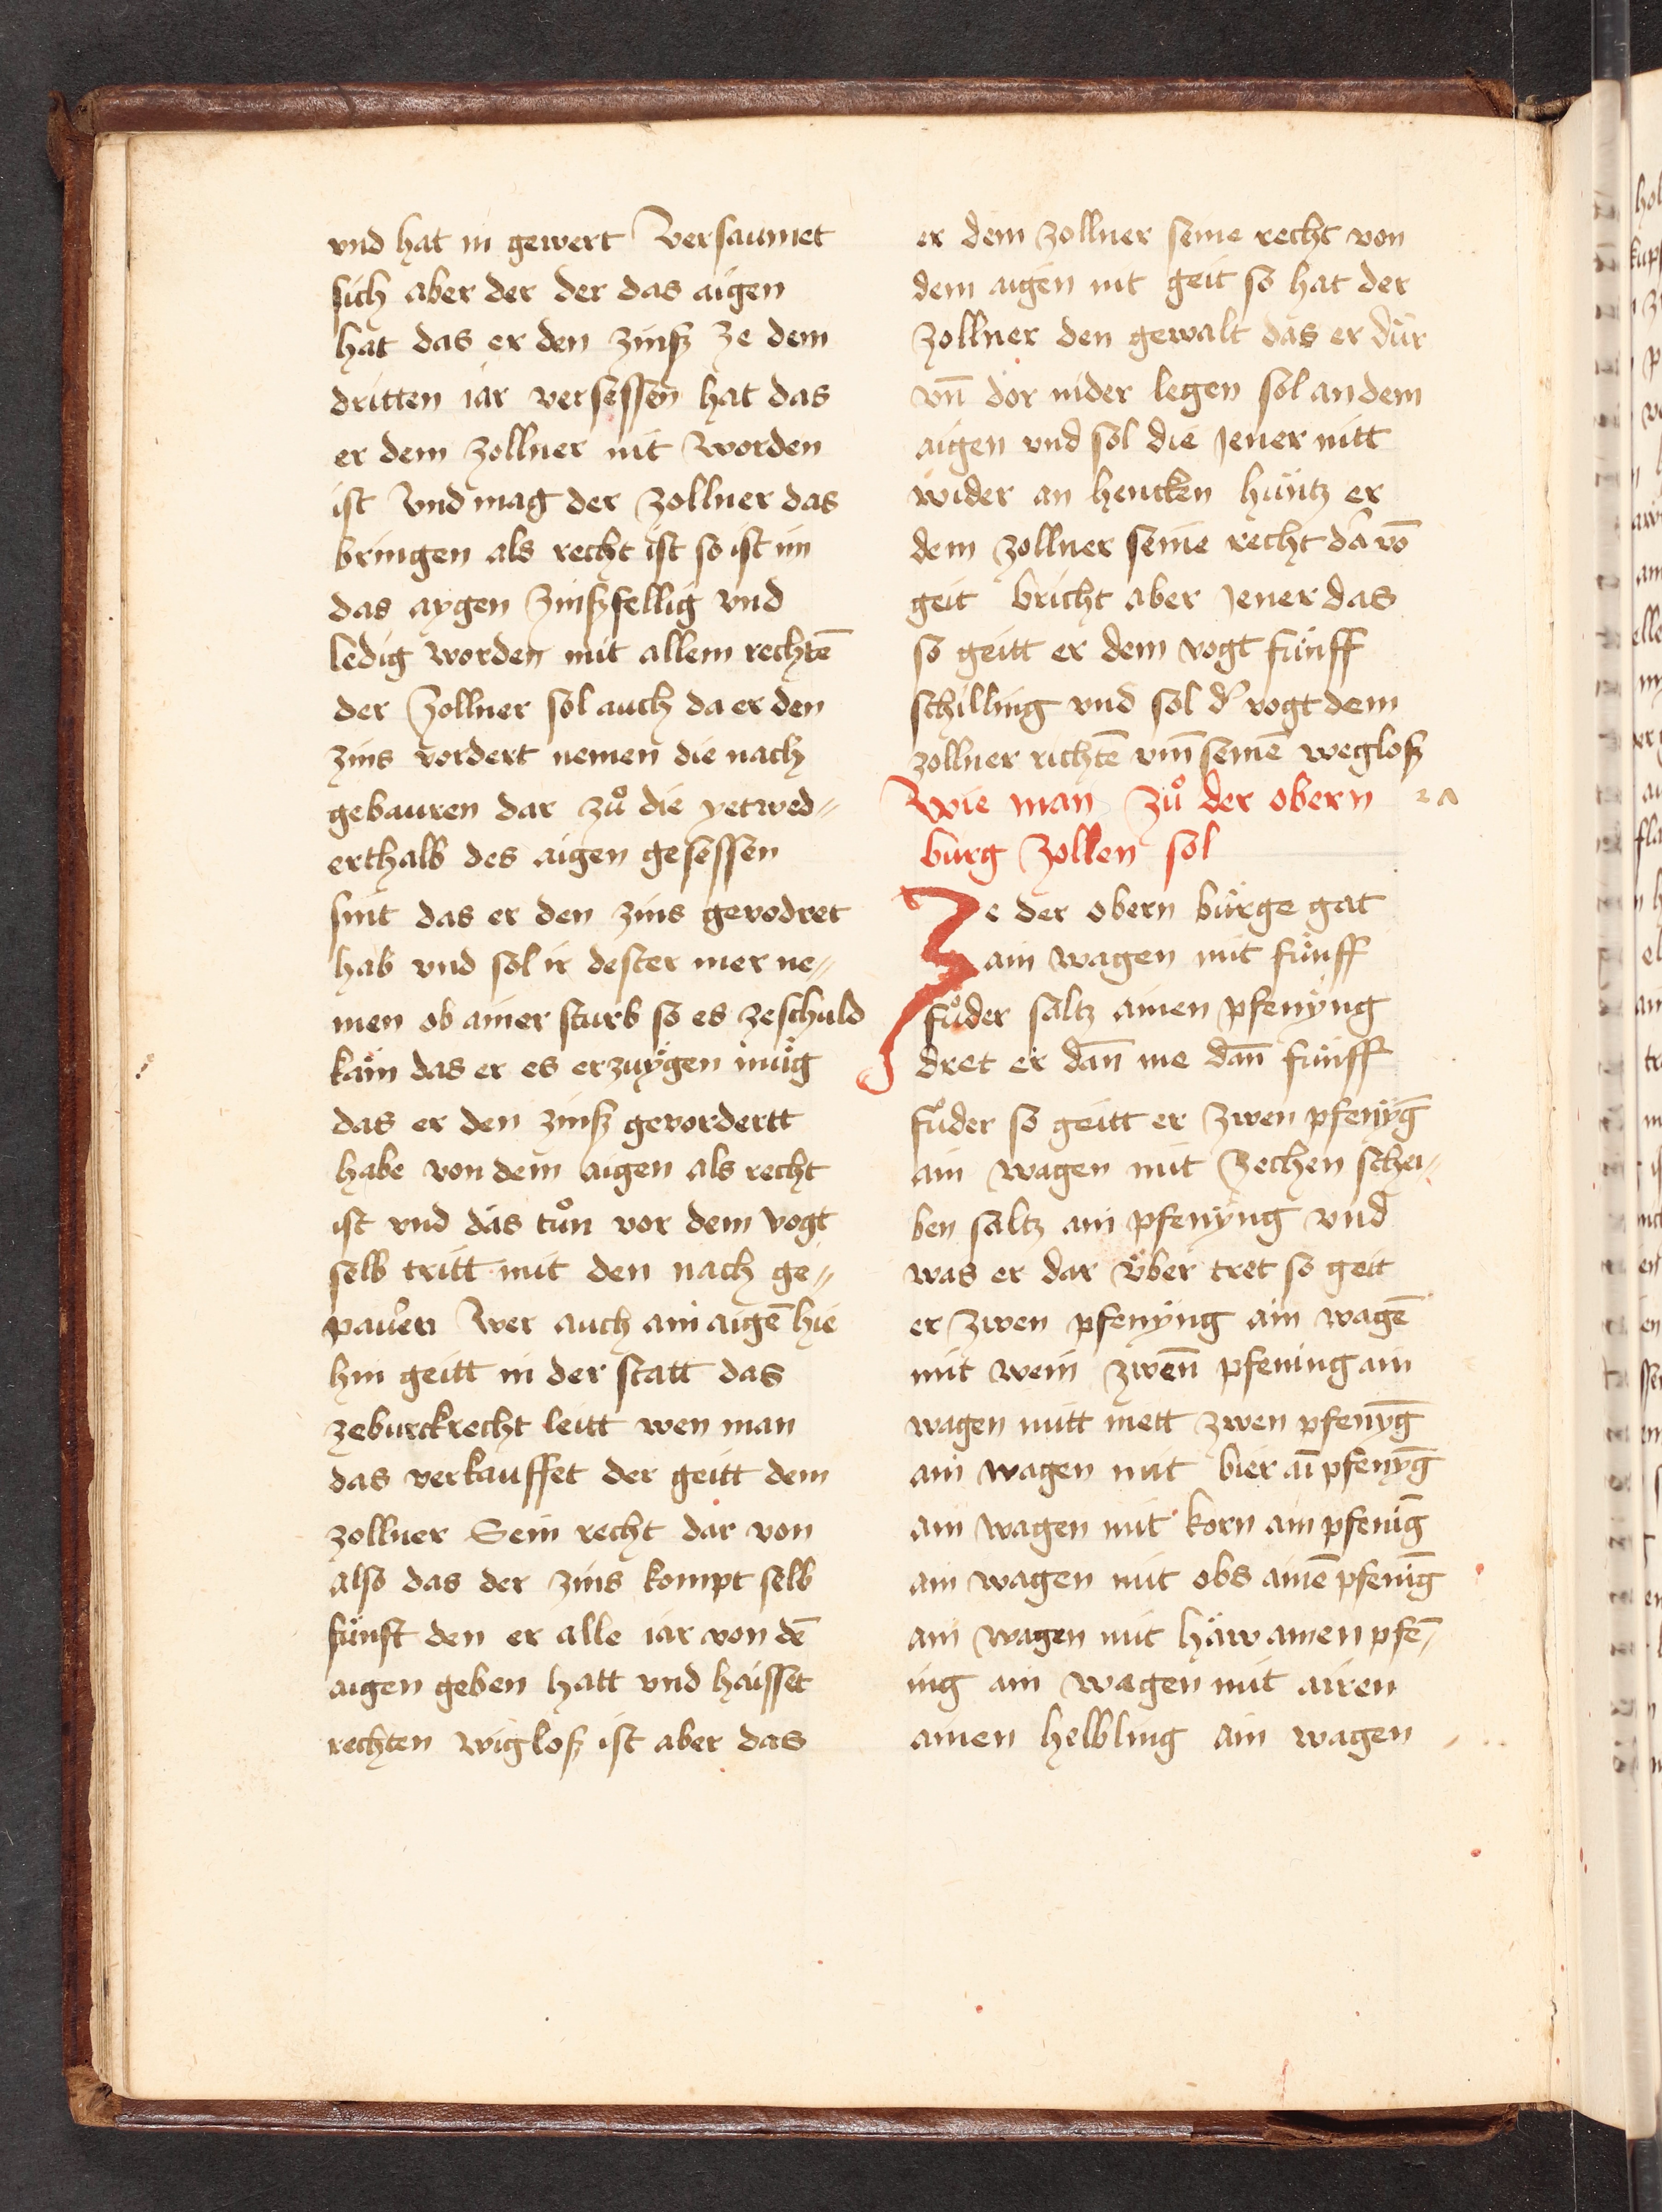 vnd hat in gewert Versaumet
sich aber der der das aigen
hat das er den zinß ze dem
dritten iar versessen hat das
er dem zollner nit worden
ist Vnd mag der zollner das
bringen als recht ist so ist im
das aygen zinßfellig vnd
ledig worden mit allem rechtē
der zollner sol auch da er den
zins vordert nemen die nach
gebauren dar zuͦ die yetwed„
erthalb des aigen gesessen
sint das er den zins gevodret
hab vnd sol ir dester mer ne„
men ob ainer sturb so es zeschuld
käm das er es erzuͤgen muͤg
das er den zinß gevordertt
habe von dem aigen als recht
ist vnd das tuͦn vor dem vogt
selb tritt mit den nach ge„
pauͤrn Wer auch ain aigē hie
hin geitt in der statt das
zeburckrecht leitt wen man
das verkauffet der geitt dem
zollner Sein recht dar von
also das der zins kompt selb
fünft den er alle iar von dē
aigen geben hatt vnd haisset
rechten wigloß ist aber das
er dem zollner seine recht von
dem aigen nit geit so hat der
zollner den gewalt das er dür
vn̄ dor nider legen sol an dem
aigen vnd sol die Jener nitt
wider an hencken hüntz er
dem zollner seine recht da vō
geit bricht aber Jener das
so geitt er dem vogt fünff
schilling vnd sol d' vogt dem
zollner richtē vm̄ seinē wegloß
Wie man zuͦ der obern
burg zollen sol
Ze der obern bürge gat
ain wagen mit fünff
fuͦder saltz ainen pfenyng
dret er dan̄ me dan̄ fünff
fuder so geitt er zwen pfenyḡ
ain wagen mit Zechen schei„
ben saltz ain pfenyng vnd
was er dar über tret so geit
er zwen pfenyng ain wagē
mit wein zwen̄ pfening ain
wagen mitt mett zwen pfenyḡ
ain wagen mit bier aī pfenyḡ
ain wagen mit korn ain pfeniḡ
ain wagen mit obs ainē pfeniḡ
ain wagen mit häw ainen pfē„
ing ain wagen mit airen
ainen helbling ain wagen